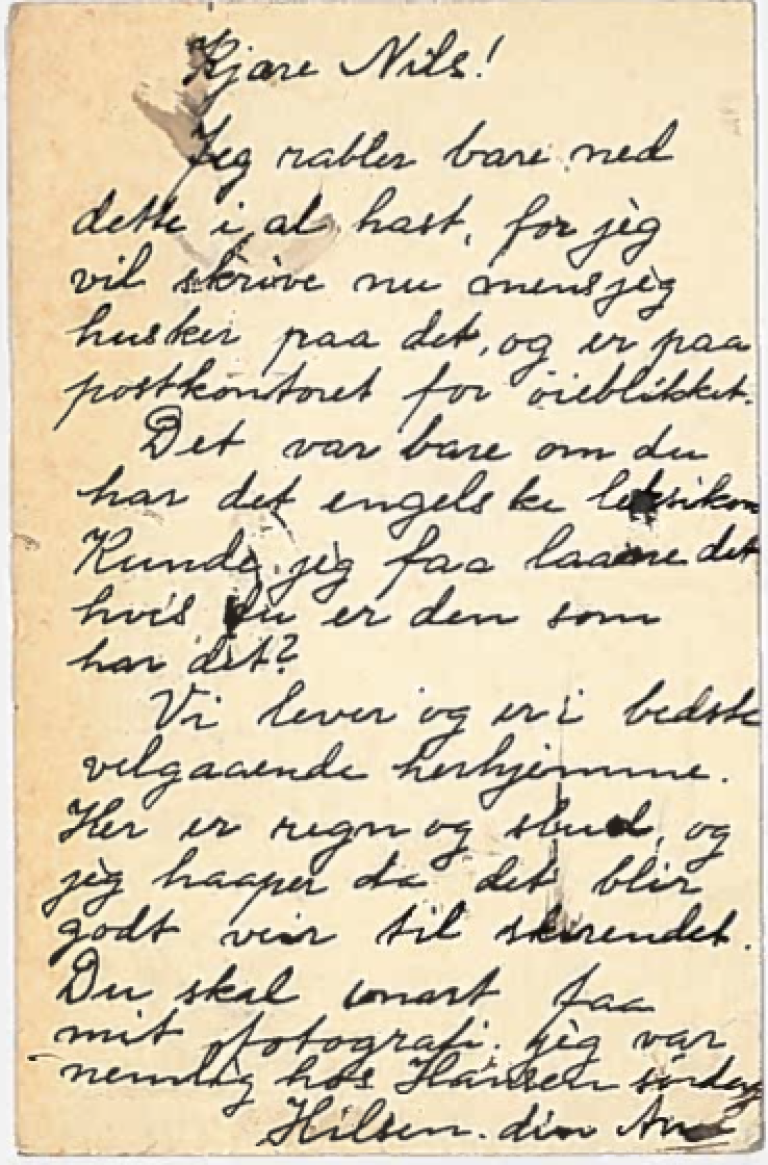 Kjære Nils!
Jeg rabler bare ned
dette i al hast, for jeg
vil skrive nu mens jeg
husker paa det, og er paa
postkontoret for öieblikket.
Det var bare om du
har det engelske leksikon
Kunde jeg faa laane det
hvis du er den som
har det?
Vi lever og er i bedste
velgaaende herhjemme.
Her er regn og slud, og
jeg haaper da det blir
godt veir til skirendet.
Du skal snart faa
mit fotografi. jeg var
nemlig hos Hansen søndag
Hilsen. din